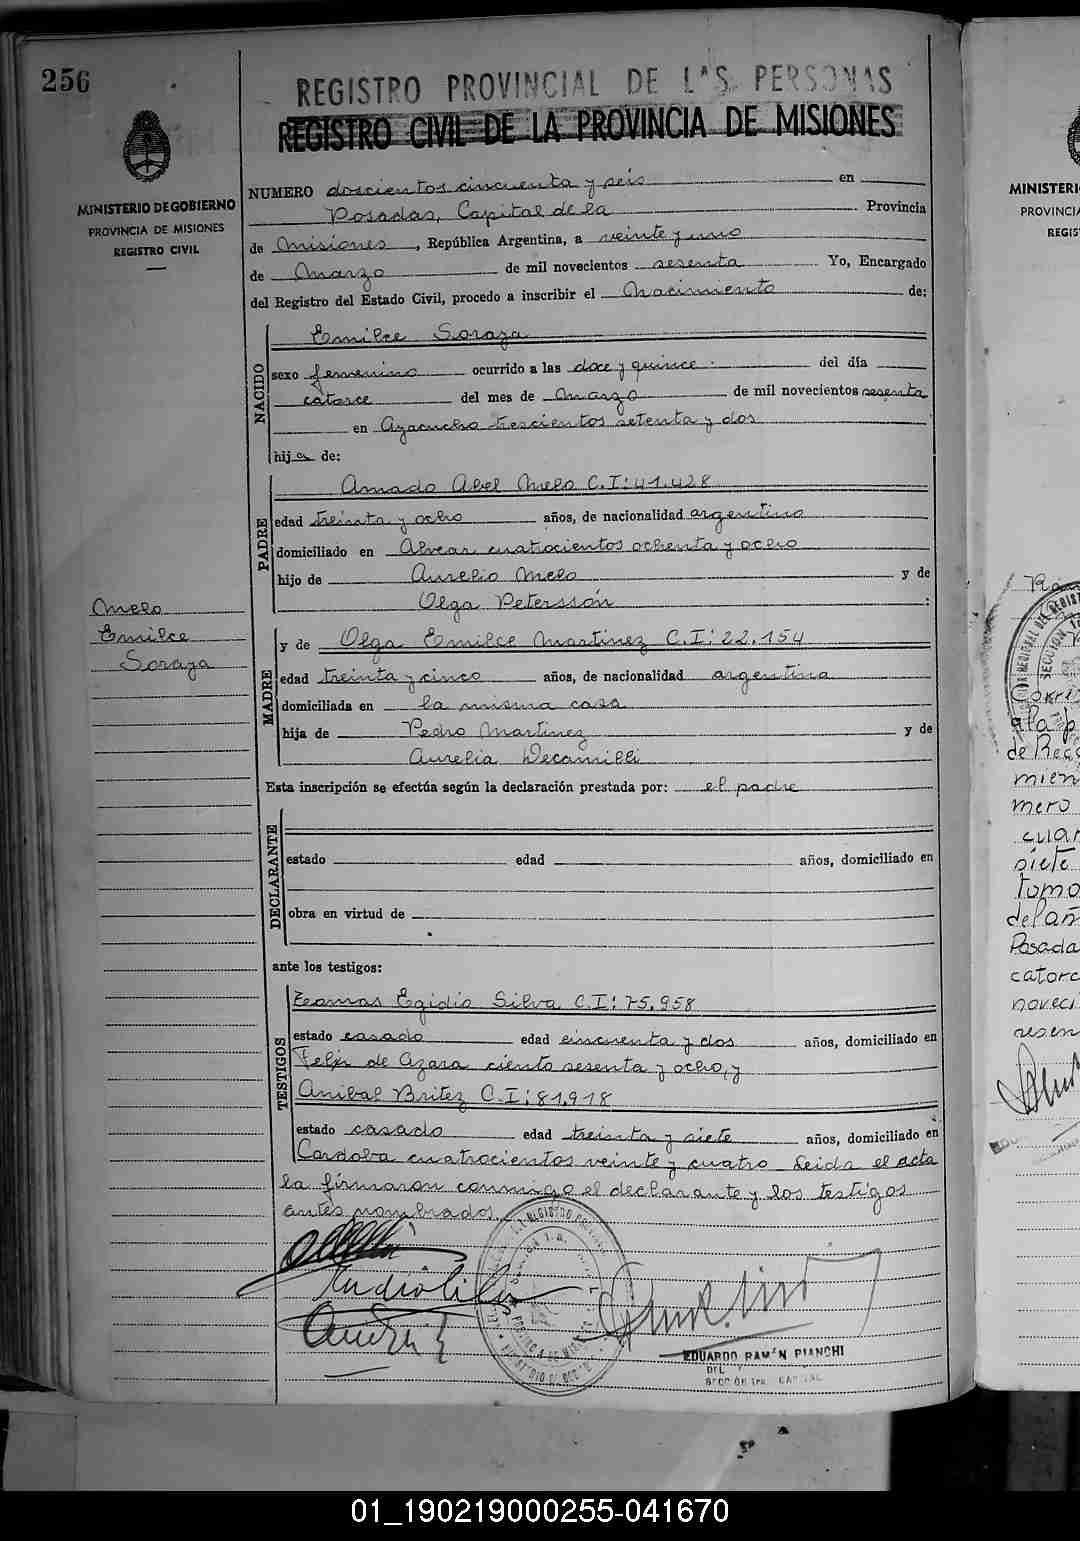 256
REGISTRO PROVINCIAL DE LAS PERSONAS
REGISTRO CIVIL DE LA PROVINCIA DE MISIONES
MINISTERIO DE GOBIERNO
PROVINCIA DE MISIONES
REGISTRO CIVIL
NUMERO doscientos cincuenta y seis en
Posadas, Capital de la Provincia
de Misiones, República Argentina, a veinte y uno
de Marzo de mil novecientos sesenta Yo, Encargado
del Registro del Estado Civil, procedo a inscribir el Nacimiento de:
NACIDO
Emilce Soraya
sexo femenino ocurrido a las doce y quince. del día
catorce del mes de Marzo de mil novecientos sesenta
en Ayacucho trescientos setenta y dos
hija de:
PADRE
Amado Abel Melo C.I:41.428
edad treinta y ocho años, de nacionalidad argentino
domiciliado en Alvear cuatrocientos ochenta y ocho
hijo de Aurelio Melo y de
Olga Peterssón :
Melo
Emilce
Soraya
MADRE
y de Olga Emilce Martinez C.I:22.154
edad treinta y cinco años, de nacionalidad argentina
domiciliada en la misma casa
hija de Pedro Martinez y de
Aurelia Decamilli
Esta inscripción se efectúa según la declaración prestada por: el padre
DECLARANTE
estado edad años, domiciliado en
obra en virtud de
ante los testigos:
TESTIGOS
Egidio Silva C.I:75.958
estado casado edad cincuenta y dos años, domiciliado en
Felix de Azara ciento sesenta y ocho, y
Anibal Britez C.I:81.918
estado casado edad treinta y siete años, domiciliado en
Cordoba cuatrocientos veinte y cuatro Leida el acta
la firmaron conmigo el declarante y los testigos
antes nombrados.
EDUARDO RAMÓN PIANCHI
MINISTERI
PROVINCIA
REGIS
Corri
a la p
de Reg
mien
mero
cuar
siete
tomo
del añ
Posada
catorc
noveci
sesen
01_190219000255-041670